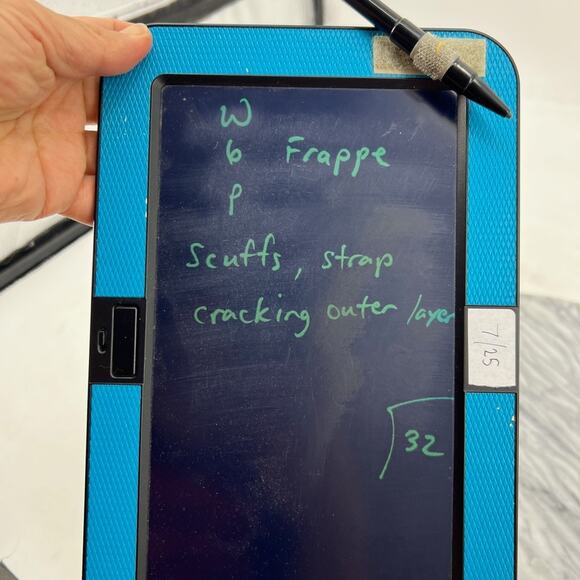 W
6 Frappe
P
Scuffs, strap
cracking outer layer
7/25
32